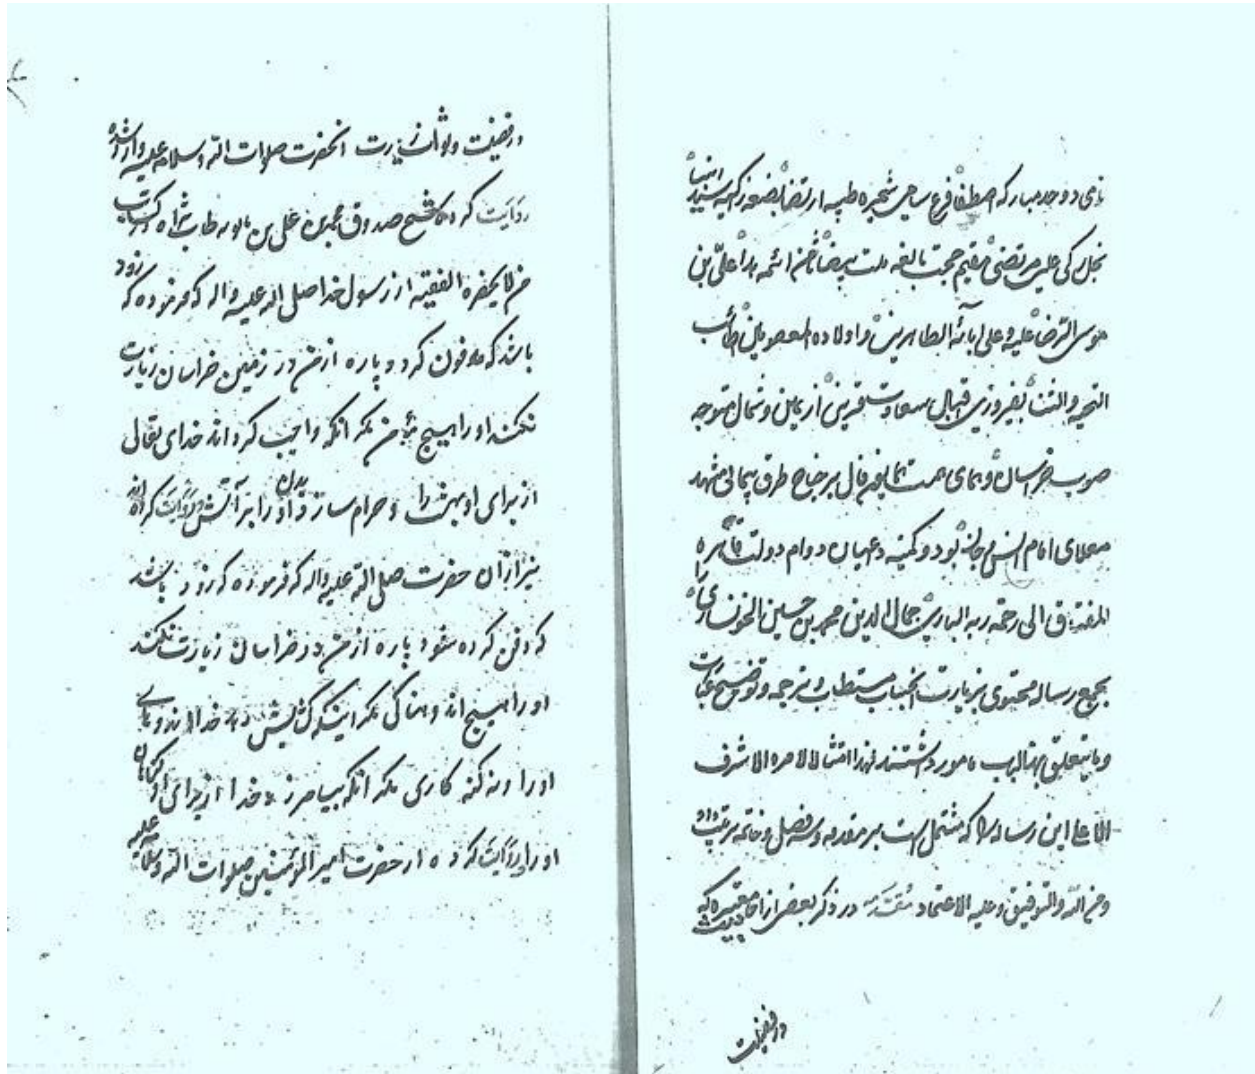 نامی دوحه مبارکه اصطفا فرع سامی شجره طیبه ارتضا بضعه زکیه سید انبیا
نجل زکی علی مرتضی مقیم حجت بالغه ملت بیضا ثامن ائمه هدا علی بن
موسی الرضا علیه و علی آبائه الطاهرین و اولاده المعصومین اطائب
التحیه و الثنا بفیروزی اقبال سعادت قرین از یمین و شمال متوجه
صوب خراسان و همای همت همایون فال بر جناح طرق پیمائی مشهد
معلای امام انس و جان بود و کمینه دعیان دوام دولت قاهره
المفتاق الی رحمة ربه الباری جمال الدین محمد بن حسین الخونساری را
بجمع رساله محتوی بزیارت آنجناب مستطاب و ترجمه و توضیح عبارات
و ما یتعلق بهذالباب مامور داشتند لهذا امتثالا لامره الاشرف
الاعلی این رساله را که مشتمل است بر مقدمه و سه فصل و خاتمه ترتیب داد
و من الله التوفیق و علیه الاعتماد مقدمه در ذکر بعضی از احادیث معتبره که
در فضیلت
در فضیلت و ثواب زیارت آنحضرت صلوات الله و سلامه علیه وارد شده
روایت کرده شیخ صدوق محمد بن علی بن بابویه طاب ثراه در کتاب
من لا یحضره الفقیه از رسول خدا صلی الله علیه و اله که فرموده که زود
باشد که مدفون گردد پاره از من در زمین خراسان زیارت
نکند او را هیچ مؤمن مگر انکه واجب گرداند خدای تعالی
از برای او بهشت را و حرام سازد بدن او را بر آتش و روایت کرده اند
نیز از آن حضرت صلی الله علیه و اله که فرموده که زود باشد
که دفن کرده شود پاره از من در خراسان زیارت نکند
او را هیچ اندوهناکی مگر اینکه گشایش دهد خدا اندوههای
او را و نه گنه کاری مگر انکه بیامرزد خدا از برای او گناهان
او را و روایت کرده از حضرت امیر المؤمنین صلوات الله و سلامه علیه